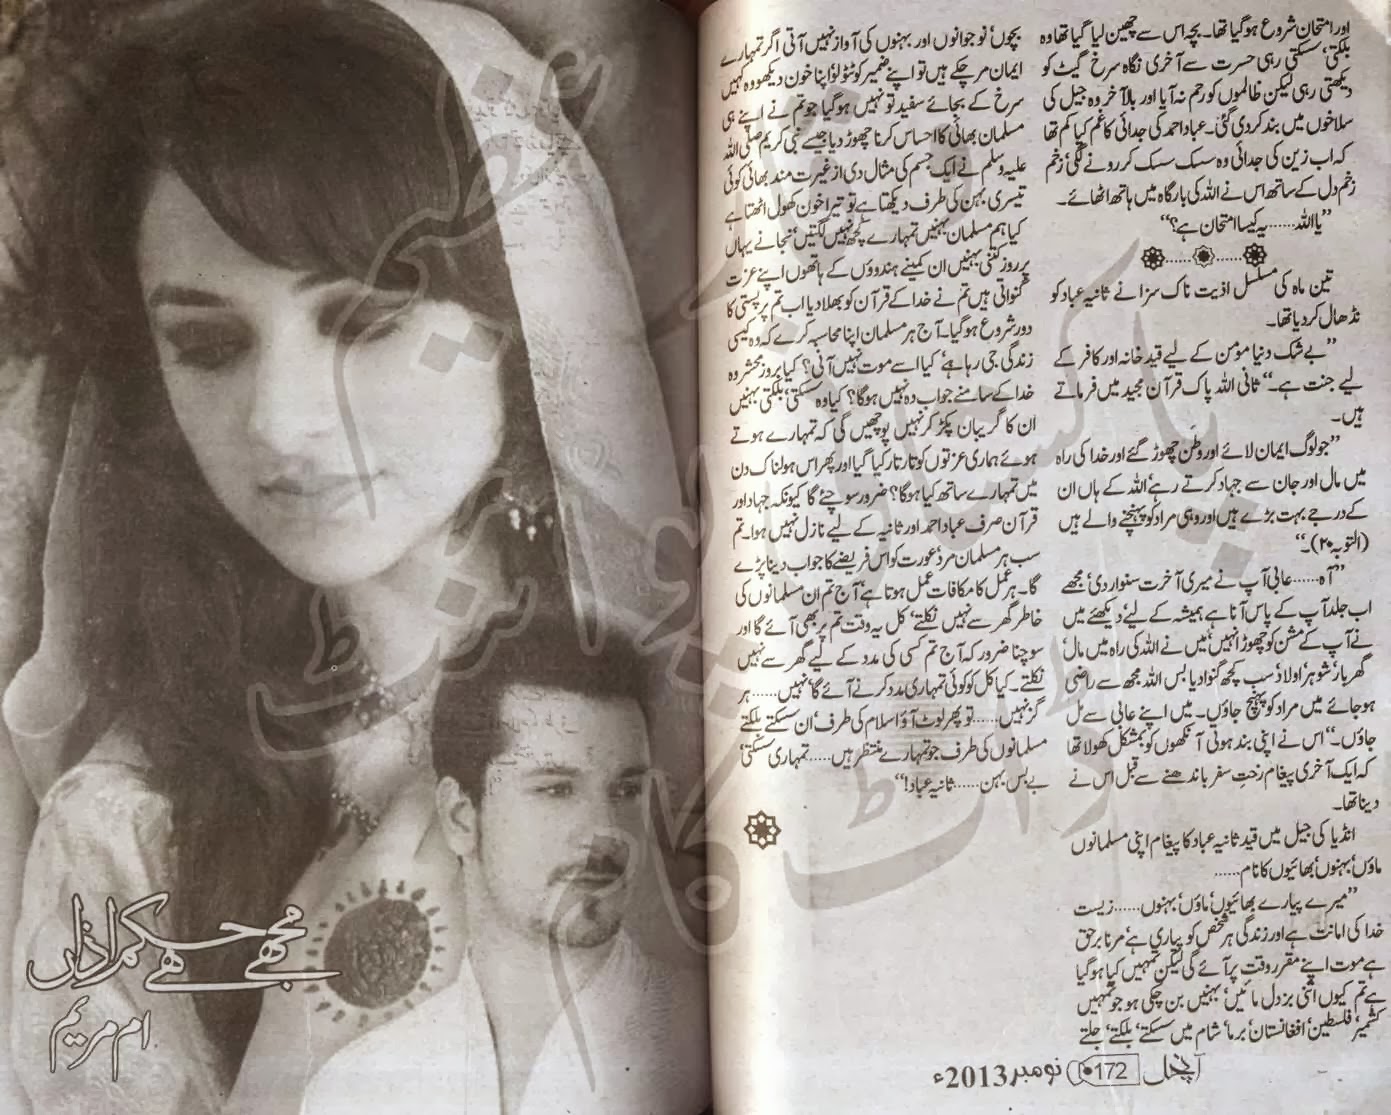 اور امتحان شروع ہوگیا تھا۔ بچہ اس سے چھین لیا گیا تھا وہ
بلکتی، سسکتی رہی حسرت سے آخری نگاہ سرخ گیٹ کو
دیکھتی رہی لیکن ظالموں کو رحم نہ آیا اور بالآخر وہ جیل کی
سلاخوں میں بند کردی گئی۔ عباد احمد کی جدائی کا غم کیا کم تھا
کہ اب زین کی جدائی وہ سسک سسک کر رونے لگی زخم
زخم دل کے ساتھ اس نے اللہ کی بارگاہ میں ہاتھ اٹھائے۔
”یا اللہ...... یہ کیسا امتحان ہے؟“
تین ماہ کی مسلسل اذیت ناک سزا نے ثانیہ عباد کو
نڈھال کردیا تھا۔
”بے شک دنیا مومن کے لیے قید خانہ اور کافر کے
لیے جنت ہے۔“ ثانی اللہ پاک قرآن مجید میں فرماتے
ہیں۔
”جو لوگ ایمان لائے اور وطن چھوڑ گئے اور خدا کی راہ
میں مال اور جان سے جہاد کرتے رہے اللہ کے ہاں ان
کے درجے بہت بڑے ہیں اور وہی مراد کو پہنچنے والے ہیں
(التوبہ ۲۰)۔“
”آہ...... عابی آپ نے میری آخرت سنوار دی، مجھے
اب جلد آپ کے پاس آنا ہے ہمیشہ کے لیے، دیکھئے میں
نے آپ کے مشن کو چھوڑا نہیں، میں نے اللہ کی راہ میں مال،
گھر بار، شوہر، اولاد، سب کچھ گنوا دیا بس اللہ مجھ سے راضی
ہوجائے میں مراد کو پہنچ جاؤں۔ میں اپنے عابی سے مل
جاؤں۔“ اس نے اپنی بند ہوتی آنکھوں کو بمشکل کھولا تھا
کہ ایک آخری پیغام رخت سفر باندھنے سے قبل اس نے
دینا تھا۔
انڈیا کی جیل میں قید ثانیہ عباد کا پیغام اپنی مسلمانوں
ماؤں، بہنوں، بھائیوں کا نام......
”میرے پیارے بھائیوں، ماؤں، بہنوں...... زیست
خدا کی امانت ہے اور زندگی ہر شخص کو پیاری ہے، مرنا برحق
ہے موت اپنے مقرر وقت پر آئے گی لیکن تمہیں کیا ہوگیا
ہے تم کیوں اتنی بزدل مائیں، بہنیں بن چکی ہو جو تمہیں
کشمیر، فلسطین، افغانستان، برما، شام میں سسکتے، بلکتے، جلتے
بچوں، نوجوانوں اور بہنوں کی آواز نہیں آتی اگر تمہارے
ایمان مرچکے ہیں تو اپنے ضمیر کو ٹٹولو، اپنا خون دیکھو وہ کہیں
سرخ کے بجائے سفید تو نہیں ہوگیا جو تم نے اپنے ہی
مسلمان بھائی کا احساس کرنا چھوڑ دیا جیسے نبی کریم صلی اللہ
علیہ وسلم نے ایک جسم کی مثال دی از غیرت مند بھائی کوئی
تیسری بہن کی طرف دیکھتا ہے تو تیرا خون کھول اٹھتا ہے
کیا ہم مسلمان بہنیں تمہارے کچھ نہیں لگتیں، نجانے یہاں
پر روز کتنی بہنیں ان کمینے ہندوؤں کے ہاتھوں اپنے عزت
گنواتی ہیں تم نے خدا کے قرآن کو بھلا دیا اب تم پر پستی کا
دور شروع ہوگیا۔ آج ہر مسلمان اپنا محاسبہ کرے کہ وہ کیسی
زندگی جی رہا ہے، کیا اسے موت نہیں آنی؟ کیا بروز محشر وہ
خدا کے سامنے جواب دہ نہیں ہوگا؟ کیا وہ سسکتی، بلکتی بہنیں
ان کا گریبان پکڑ کر نہیں پوچھیں گی کہ تمہارے ہوتے
ہوئے ہماری عزتوں کو تار تار کیا گیا اور پھر اس ہولناک دن
میں تمہارے ساتھ کیا ہوگا؟ ضرور سوچئے گا کیونکہ جہاد اور
قرآن صرف عباد احمد اور ثانیہ کے لیے نازل نہیں ہوا۔ تم
سب ہر مسلمان مرد، عورت کو اس فریضے کا جواب دینا پڑے
گا۔ ہر عمل کا مکافات عمل ہوتا ہے، آج تم ان مسلمانوں کی
خاطر گھر سے نہیں نکلتے، کل یہ وقت تم پر بھی آئے گا اور
سوچنا ضرور کہ آج تم کسی کی مدد کے لیے گھر سے نہیں
نکلتے۔ کیا کل کو کوئی تمہاری مدد کرنے آئے گا، نہیں...... ہر
گز نہیں...... تو پھر لوٹ آؤ اسلام کی طرف، ان سسکتے بلکتے
مسلمانوں کی طرف جو تمہارے منتظر ہیں..... تمہاری سسکتی،
بے بس بہن...... ثانیہ عباد!“
آنچل 172 نومبر 2013ء
مجھے ہے حکم اذاں
ام مریم